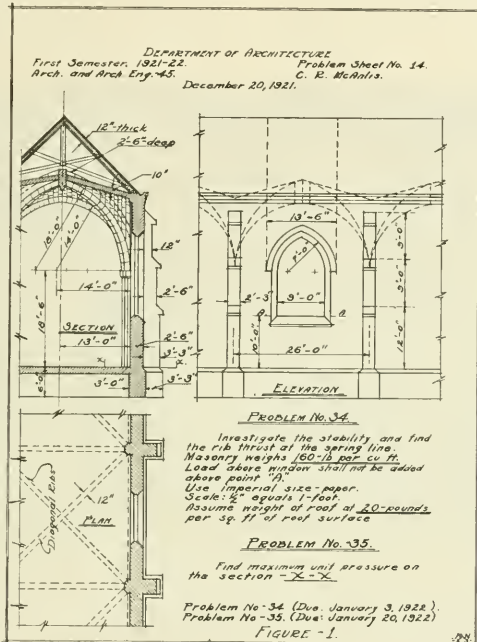 DEPARTMENT OF ARCHITECTURE
First Semester, 1921-22. Problem Sheet No. 14.
Arch. and Arch. Eng.-45. C. R. McAnlis.
December 20, 1921.
12"-thick
2'-6"-deep
10"
12"
14'-0"
18'-6"
2'-6"
SECTION
13'-0"
2'-6"
3'-3"
6'-0"
3'-0"
3'-3"
x
x
13'-6"
9'-0"
2'-3"
9'-0"
A
10'-0"
26'-0"
9'-0"
12'-0"
ELEVATION
Diagonal Ribs
12"
PLAN
PROBLEM No. 34.
Investigate the stability and find
the rib thrust at the spring line.
Masonry weighs 160-lb per cu ft.
Load above window shall not be added
above point "A."
Use imperial size-paper.
Scale: ½" equals 1-foot.
Assume weight of roof at 20-pounds
per sq. ft of roof surface
PROBLEM No-35.
Find maximum unit pressure on
the section - X-X
Problem No-34 (Due. January 3, 1922).
Problem No-35. (Due: January 20, 1922)
FIGURE -1.